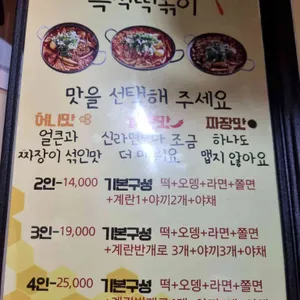 떡볶이
맛을 선택해 주세요
허니맛 맛 짜장맛
얼큰과 신라면보다 조금 하나도
짜장이 섞인맛 더 매워요 맵지 않아요
2인-14,000 기본구성 떡+오뎅+라면+쫄면
+계란1+야끼2개+야채
3인-19,000 기본구성 떡+오뎅+라면+쫄면
+계란반개로 3개+야끼3개+야채
4인-25,000 기본구성 떡+오뎅+라면+쫄면